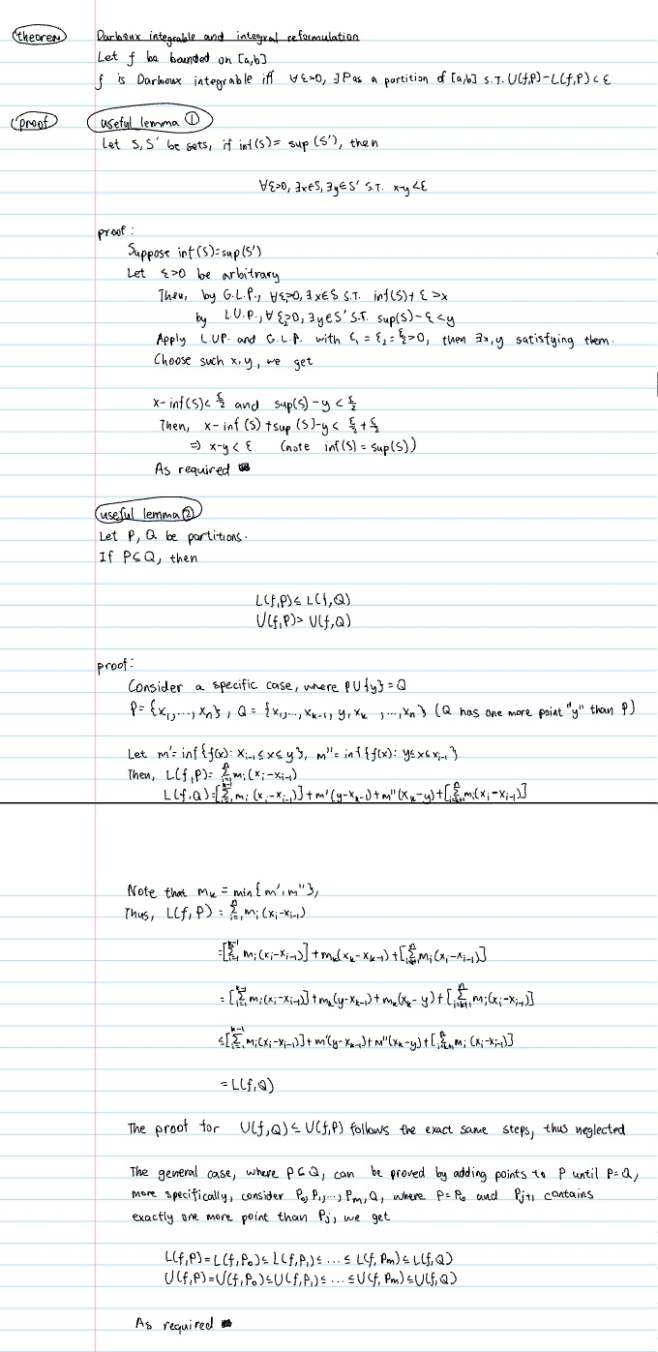 theorem
Darboux integrable and integral reformulation
Let f be bounded on [a,b]
f is Darboux integrable iff ∀ε>0, ∃P as a partition of [a,b] S.T. U(f,P)-L(f,P)<ε
proof
useful lemma ①
Let S, S' be sets, if inf(S)= sup(S'), then
∀ε>0, ∃x∈S, ∃y∈S' S.T. x-y<ε
proof:
Suppose inf(S)=sup(S')
Let ε>0 be arbitrary
Then, by G.L.P., ∀ε₁>0, ∃x∈S S.T. inf(S)+ε>x
by L.U.P., ∀ε₂>0, ∃y∈S' S.T. sup(S)-ε<y
Apply L.U.P. and G.L.P. with ε₁=ε₂=ε/2>0, then ∃x,y satisfying them.
Choose such x,y, we get
x-inf(S)<ε/2 and sup(S)-y<ε/2
Then, x-inf(S)+sup(S)-y<ε/2+ε/2
⇒ x-y<ε (note inf(S)=sup(S))
As required ■
useful lemma ②
Let P, Q be partitions.
If P⊆Q, then
L(f,P)≤L(f,Q)
U(f,P)≥U(f,Q)
proof:
Consider a specific case, where P∪{y}=Q
P={x₁,...,xₙ}, Q={x₁,...,xₖ₋₁, y, xₖ,...,xₙ} (Q has one more point "y" than P)
Let m'=inf{f(x): xᵢ₋₁≤x≤y}, m''=inf{f(x): y≤x≤xᵢ₋₁}
Then, L(f,P)=∑ⁿᵢ₌₁mᵢ(xᵢ-xᵢ₋₁)
L(f,Q)=[∑ᵏ⁻¹ᵢ₌₁mᵢ(xᵢ-xᵢ₋₁)]+m'(y-xₖ₋₁)+m''(xₖ-y)+[∑ⁿᵢ₌ₖ₊₁mᵢ(xᵢ-xᵢ₋₁)]
Note that mₖ=min{m',m''},
Thus, L(f,P)=∑ⁿᵢ₌₁mᵢ(xᵢ-xᵢ₋₁)
=[∑ᵏ⁻¹ᵢ₌₁mᵢ(xᵢ-xᵢ₋₁)]+mₖ(xₖ-xₖ₋₁)+[∑ⁿᵢ₌ₖ₊₁mᵢ(xᵢ-xᵢ₋₁)]
=[∑ᵏ⁻¹ᵢ₌₁mᵢ(xᵢ-xᵢ₋₁)]+mₖ(y-xₖ₋₁)+mₖ(xₖ-y)+[∑ⁿᵢ₌ₖ₊₁mᵢ(xᵢ-xᵢ₋₁)]
≤[∑ᵏ⁻¹ᵢ₌₁mᵢ(xᵢ-xᵢ₋₁)]+m'(y-xₖ₋₁)+m''(xₖ-y)+[∑ⁿᵢ₌ₖ₊₁mᵢ(xᵢ-xᵢ₋₁)]
=L(f,Q)
The proof for U(f,Q)≤U(f,P) follows the exact same steps, thus neglected
The general case, where P⊆Q, can be proved by adding points to P until P=Q,
more specifically, consider P₀,P₁,...,Pₘ,Q, where P=P₀ and Pⱼ₊₁ contains
exactly one more point than Pⱼ, we get
L(f,P)=L(f,P₀)≤L(f,P₁)≤...≤L(f,Pₘ)≤L(f,Q)
U(f,P)=U(f,P₀)≤U(f,P₁)≤...≤U(f,Pₘ)≤U(f,Q)
As required ■